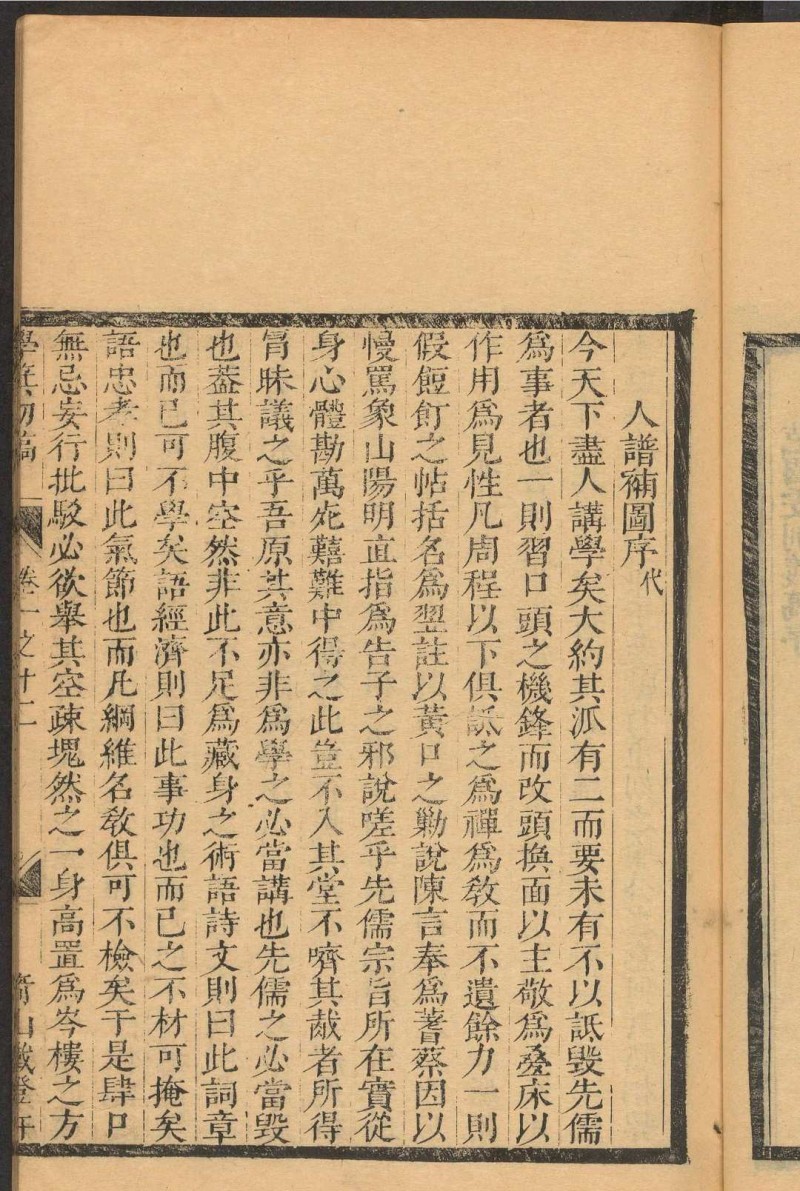 人譜補圖序代
今天下盡人講學矣大約其派有二而要未有不以詆毀先儒
爲事者也一則習口頭之機鋒而改頭換面以主敬爲疊床以
作用爲見性凡周程以下俱詆之爲禪爲敎而不遺餘力一則
假飣餖之帖括名爲翌註以黃口之勦說陳言奉爲蓍蔡因以
慢罵象山陽明直指爲告子之邪說嗟乎先儒宗旨所在實從
身心體勘萬死囏難中得之此豈不入其堂不嚌其胾者所得
冐昧議之乎吾原其意亦非爲學之必當講也先儒之必當毀
也葢其腹中空然非此不足爲藏身之術語詩文則曰此詞章
也而已可不學矣語經濟則曰此事功也而已之不材可掩矣
語忠孝則曰此氣節也而凡綱維名敎俱可不檢矣于是肆口
無忌妄行批駁必欲舉其空疎塊然之一身高置爲岑樓之方
學箕初稿
卷一之廿二